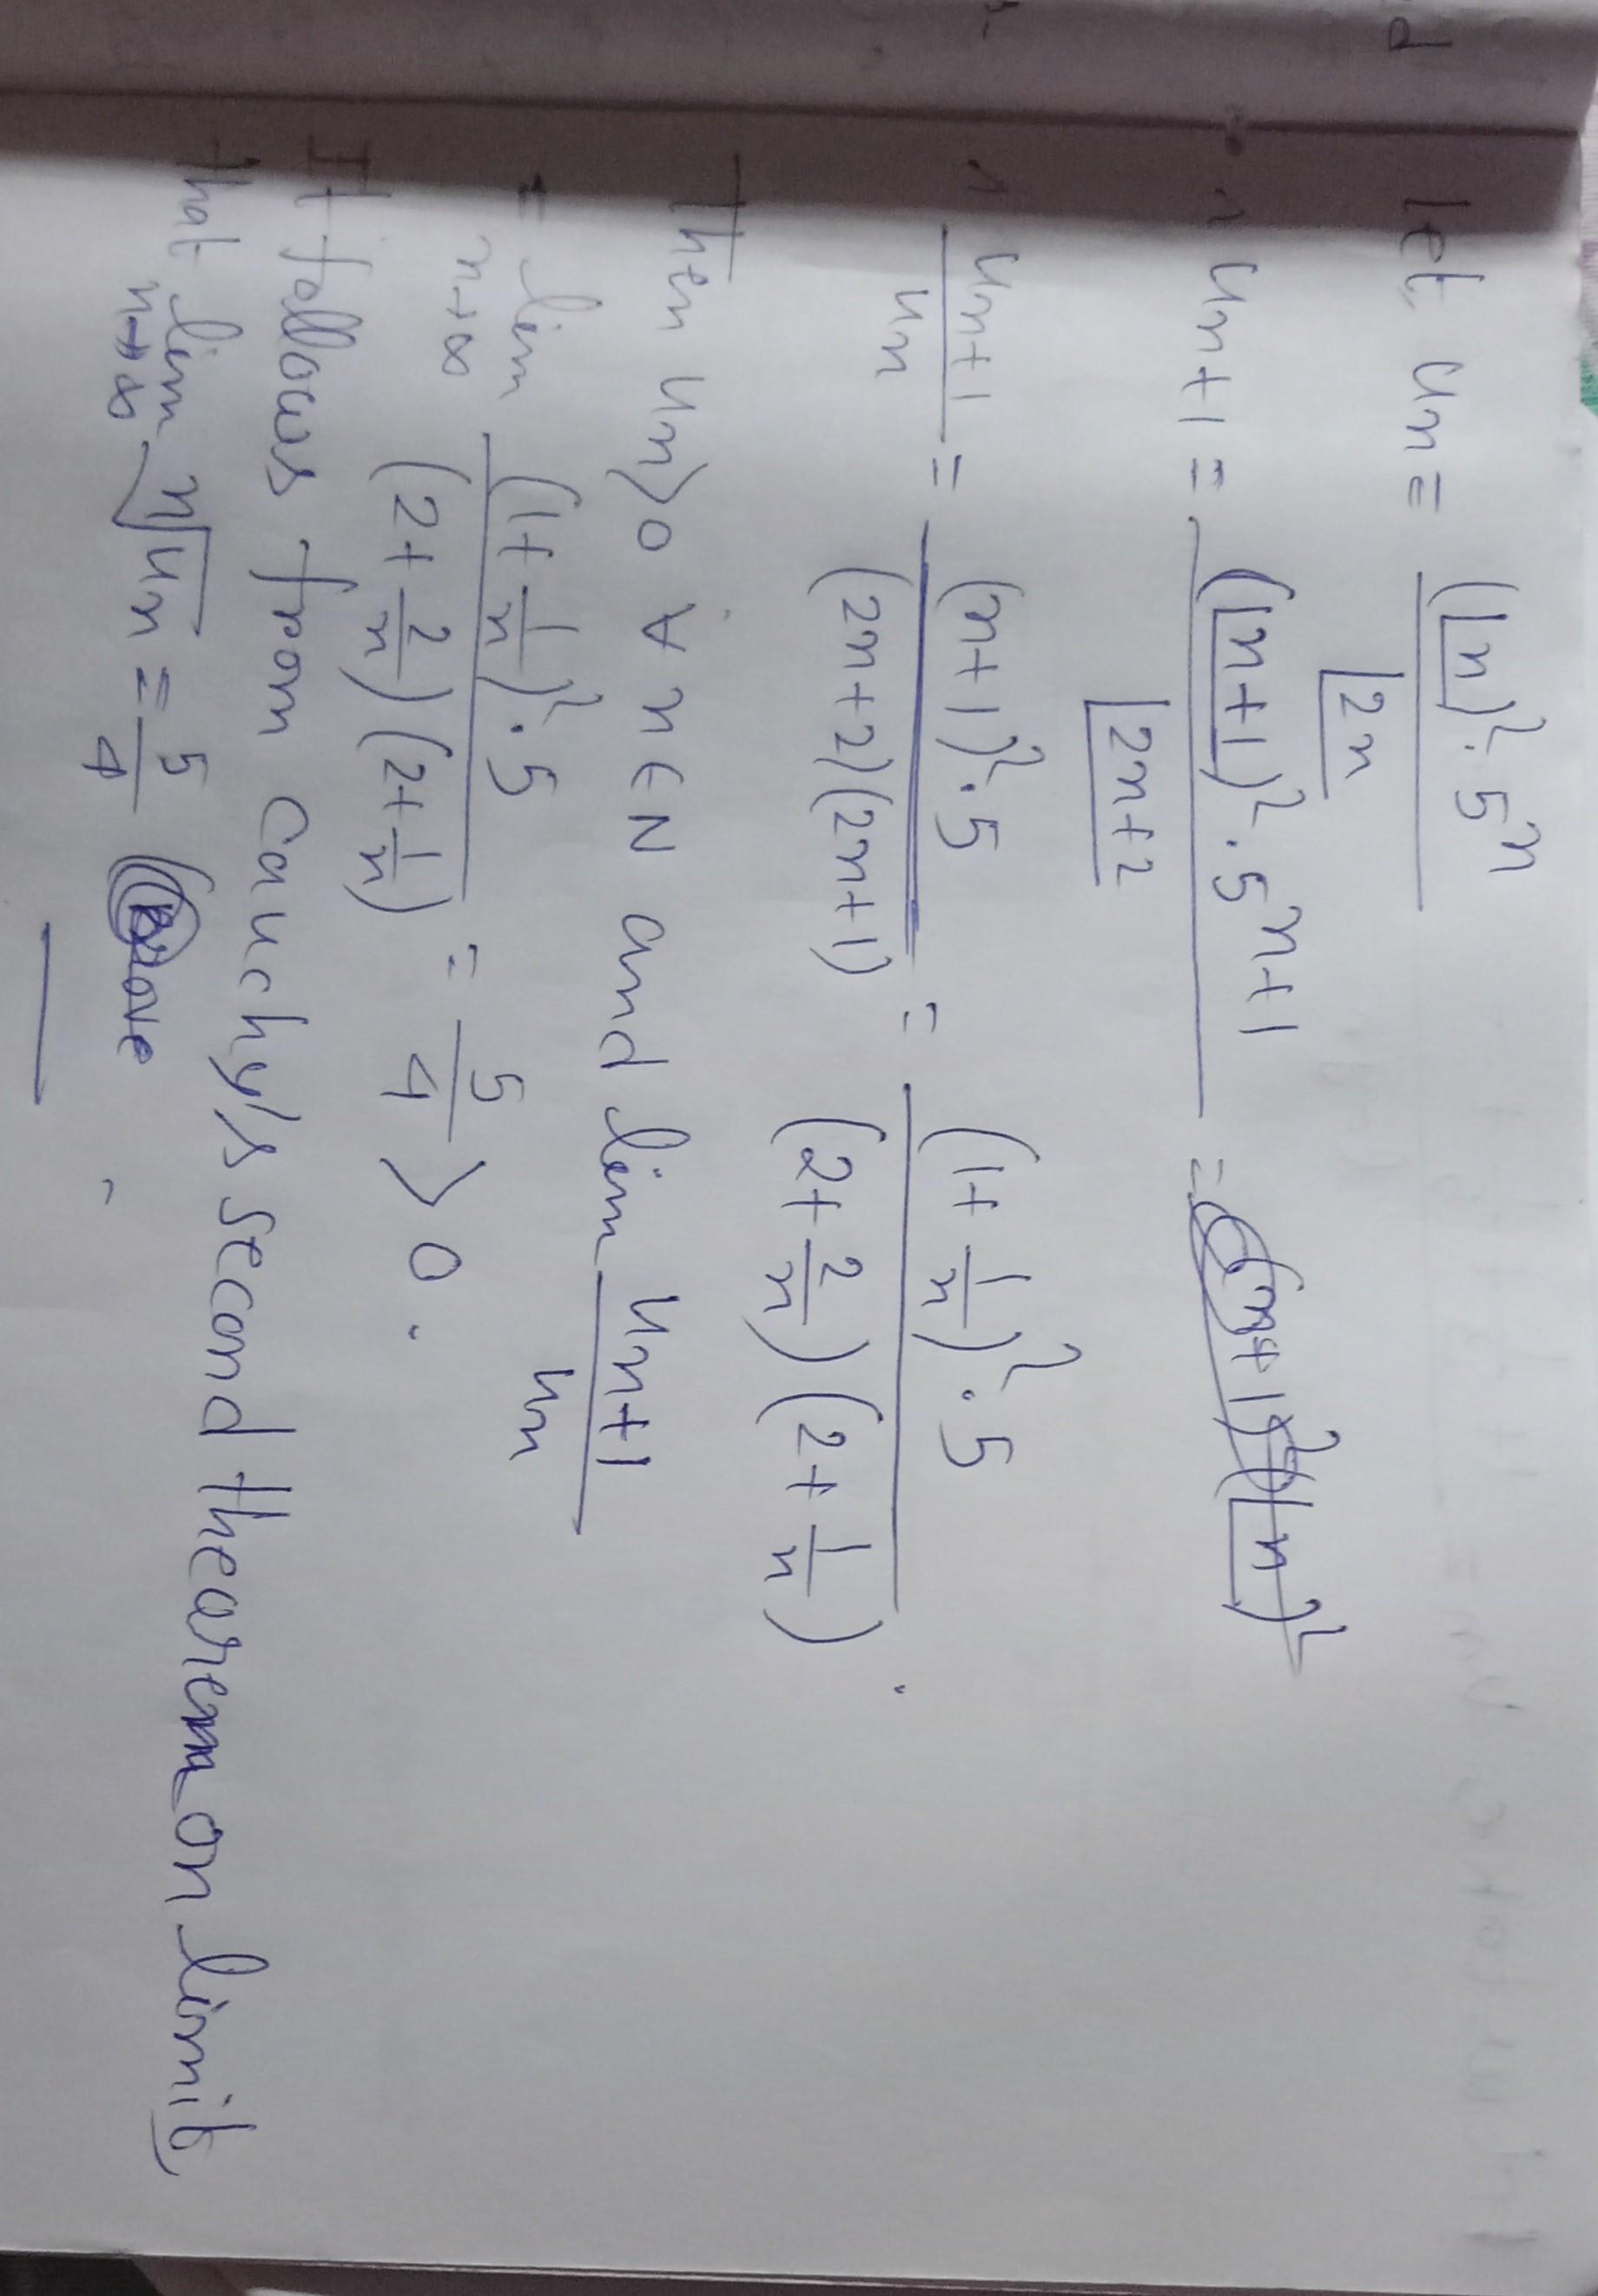 let, un = (⌊n)². 5ⁿ / ⌊2n
∴ un+1 = (⌊n+1)². 5ⁿ⁺¹ / ⌊2n+2 =
un+1 / un = (n+1)². 5 / (2n+2)(2n+1) = (1+ 1/n)². 5 / (2+ 2/n)(2+ 1/n) .
Then un>0 ∀ n ∈ N and lim un+1 / un
= lim n→∞ (1+ 1/n)². 5 / (2+ 2/n)(2+ 1/n) = 5/4 > 0 .
It follows from Cauchy's second thearem on limit
that lim n→∞ ⁿ√un = 5/4